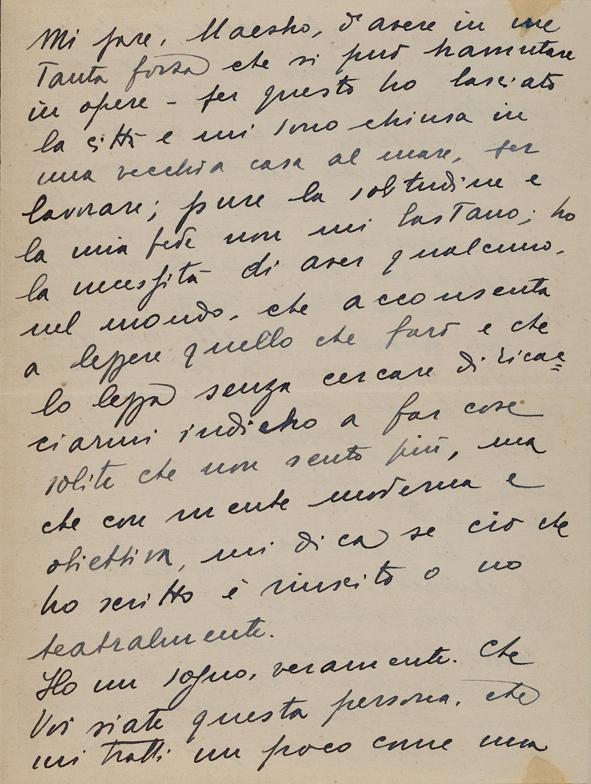 Mi pare, Maestro, d'avere in me
Tanta forza che si può tramutare
in opere - per questo ho lasciato
la città e mi sono chiusa in
una vecchia casa al mare, per
lavorare; pure la solitudine e
la mia fede non mi bastano; ho
la necessità di aver qualcuno,
nel mondo, che acconsenta
a leggere quello che farò e che
lo legga senza cercare di ricac=
ciarmi indietro a far cose
solite che non sento più, ma
che con mente moderna e
obiettiva, mi dica se ciò che
ho scritto è riuscito o no
teatralmente.
Ho un sogno, veramente. Che
Voi siate questa persona, che
mi tratti un poco come una